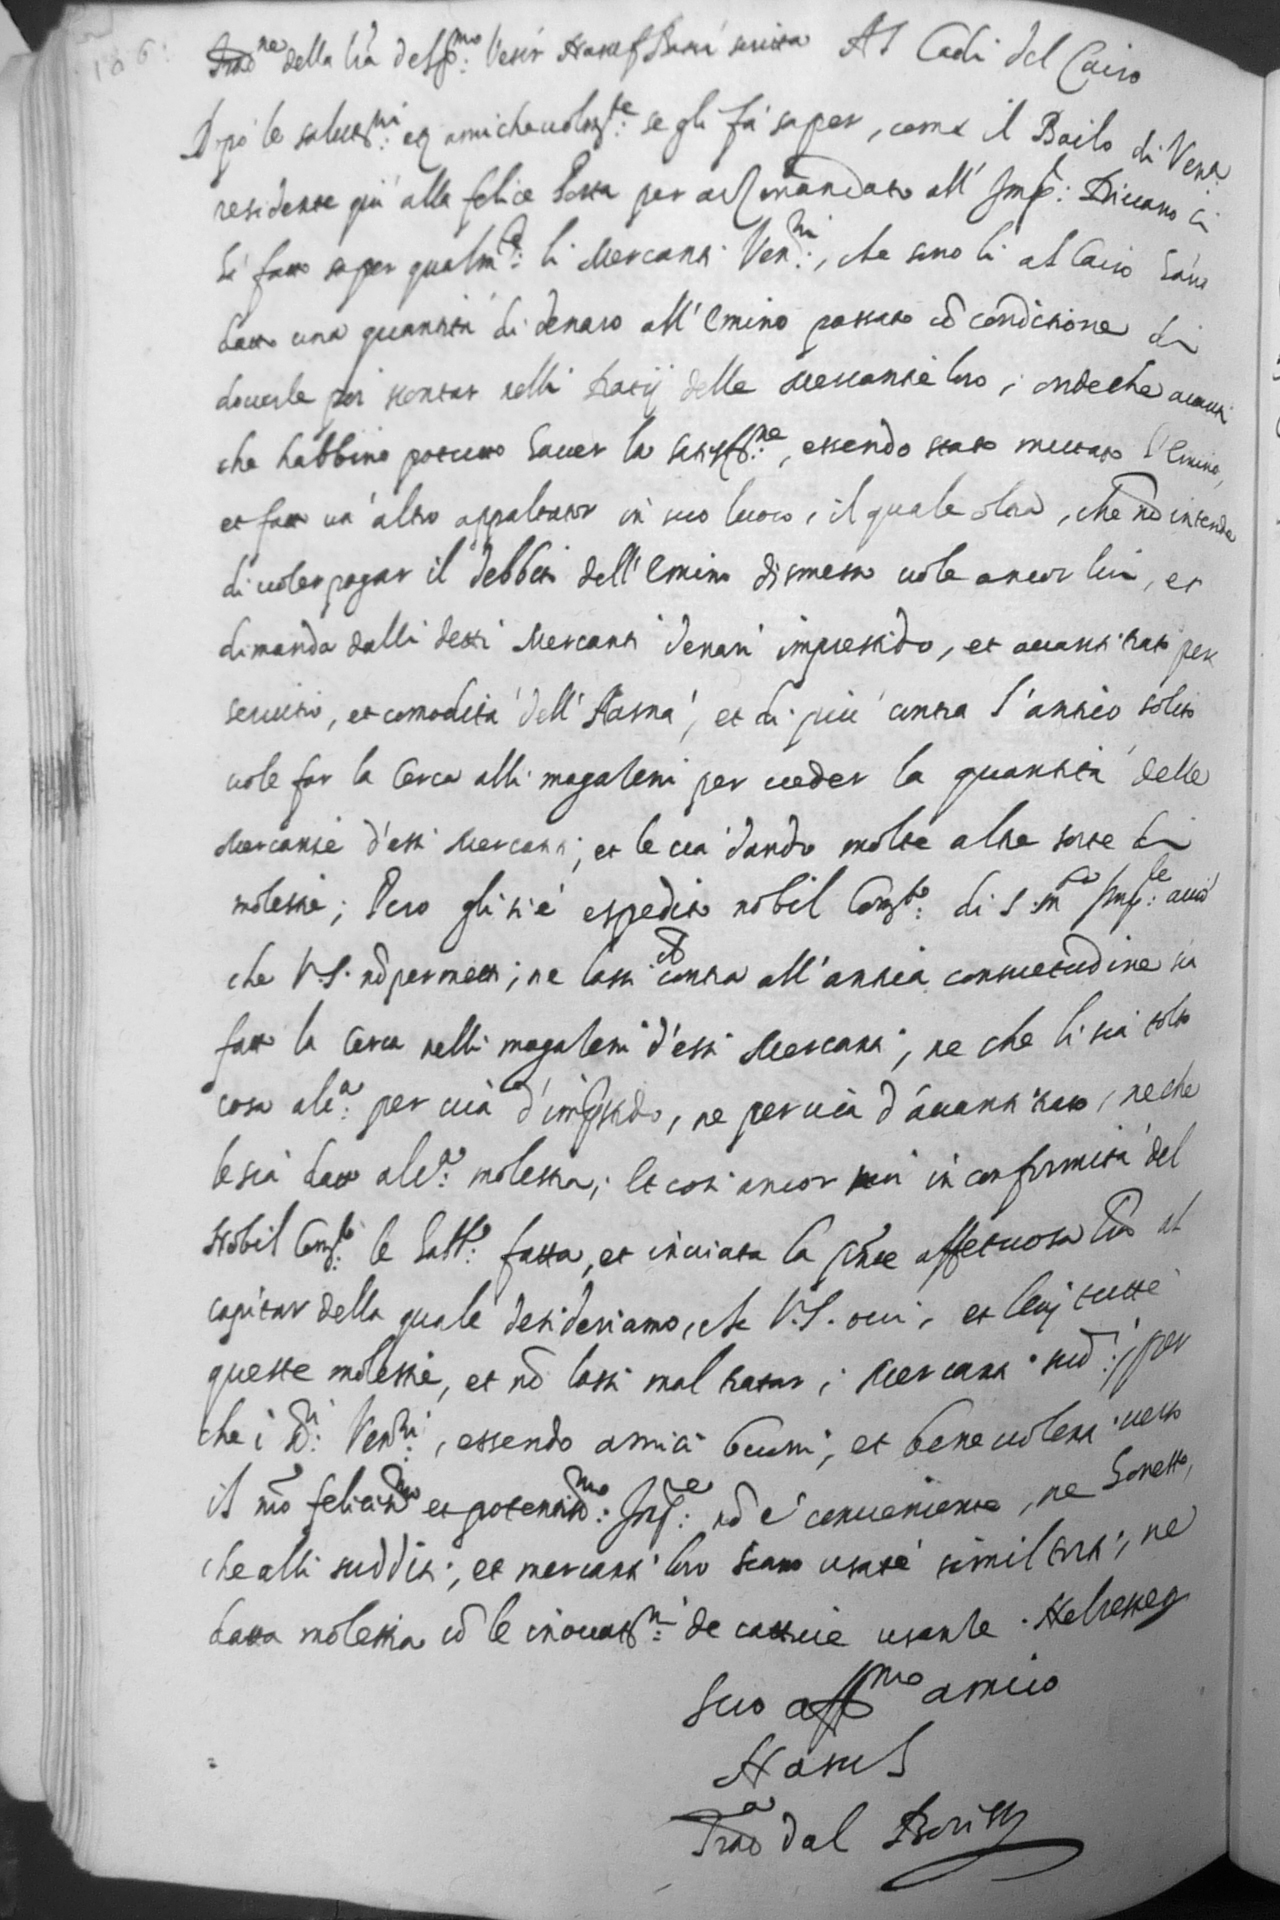 186:
Trad.ne della lrã del Ill.mo Vesir Nasuf Bassà scritta Al Cadi del Cairo
Dopo le salut.ni et amicheuolm.te se gli fà saper, come il Bailo di Ven.a
residente quì alla felice Porta per arz mandato all' Imp.l: Diuano ci
hà fatto saper qualm.te: li Mercanti Ven.ni:, che sono lì al Cairo hano
dato una quantità di denaro all' Emino passato cõ conditione di
douerle poi scontar nelli Datij delle mercantie loro; ondeche auanti
che habbino potuto hauer la satisf.ne, essendo stato mutato l'Emino,
et fatto un'altro appaltator in suo luoco, il quale oltra, che nõ intende
di uoler pagar il debbito dell'Emino dismesso uole ancor lui, et
dimanda dalli detti Mercanti denari imprestido, et auanti trato per
seruitio, et comodità dell' Hasna', et di più contra l'antico solito
uole far la cerca alli magaleni per ueder la quantità delle
Mercantie d'essi Mercanti; et le uà dando molte altre sorte di
molestie; Però gli si è espedito nobil Com.to: di S. M.tà Imp.le: acciò
che V.S. nõ permetti; ne lassi che contra all'antica consuetudine sia
fatto la cerca nelli magaleni d'essi Mercanti; ne che li sia tolto
cosa alc.a: per uià d'imp̃stido, ne per uià d'auanti trato, ne che
le sia dato alc.a: molestia; Et così ancor noi in conformità del
Nobil Com.to: le hab.mo: fatta, et inuiata la p̃nte affetuosa lrã al
capitar della quale desideriamo, che V.S. oui, et leuj tutte
queste molestie, et nõ lassi mal tratar i Mercanti sud.ti:; per
che i d.ti: Ven.ni:, essendo amici buoni, et beneuolenti uerso
il nrõ feliciss.mo et potentiss.mo: Imp.re: nõ è conueniente, ne honesto,
che alli sudditi, et mercanti loro siano usate simil torti, ne
data molestia cõ le inouat.ni: de cattiue usanze.
Suo aff.mo amico
Nasuf
Trad.a dal Borissi